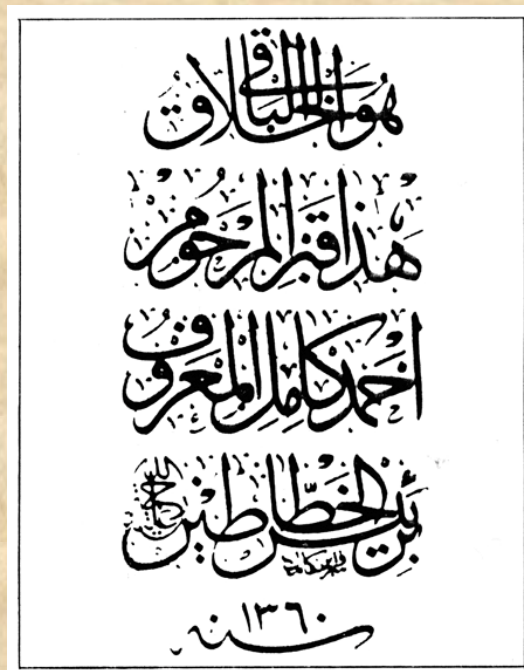 هُوَ الخَلَّاقُ البَاقِي
هٰذَا قَبْرُ المَرْحُومِ
اَحْمَد كَامِل المَعْرُوف
بِرَئِيسِ الخَطَّاطِينَ رحمه الله
سنه ١٣٦٠